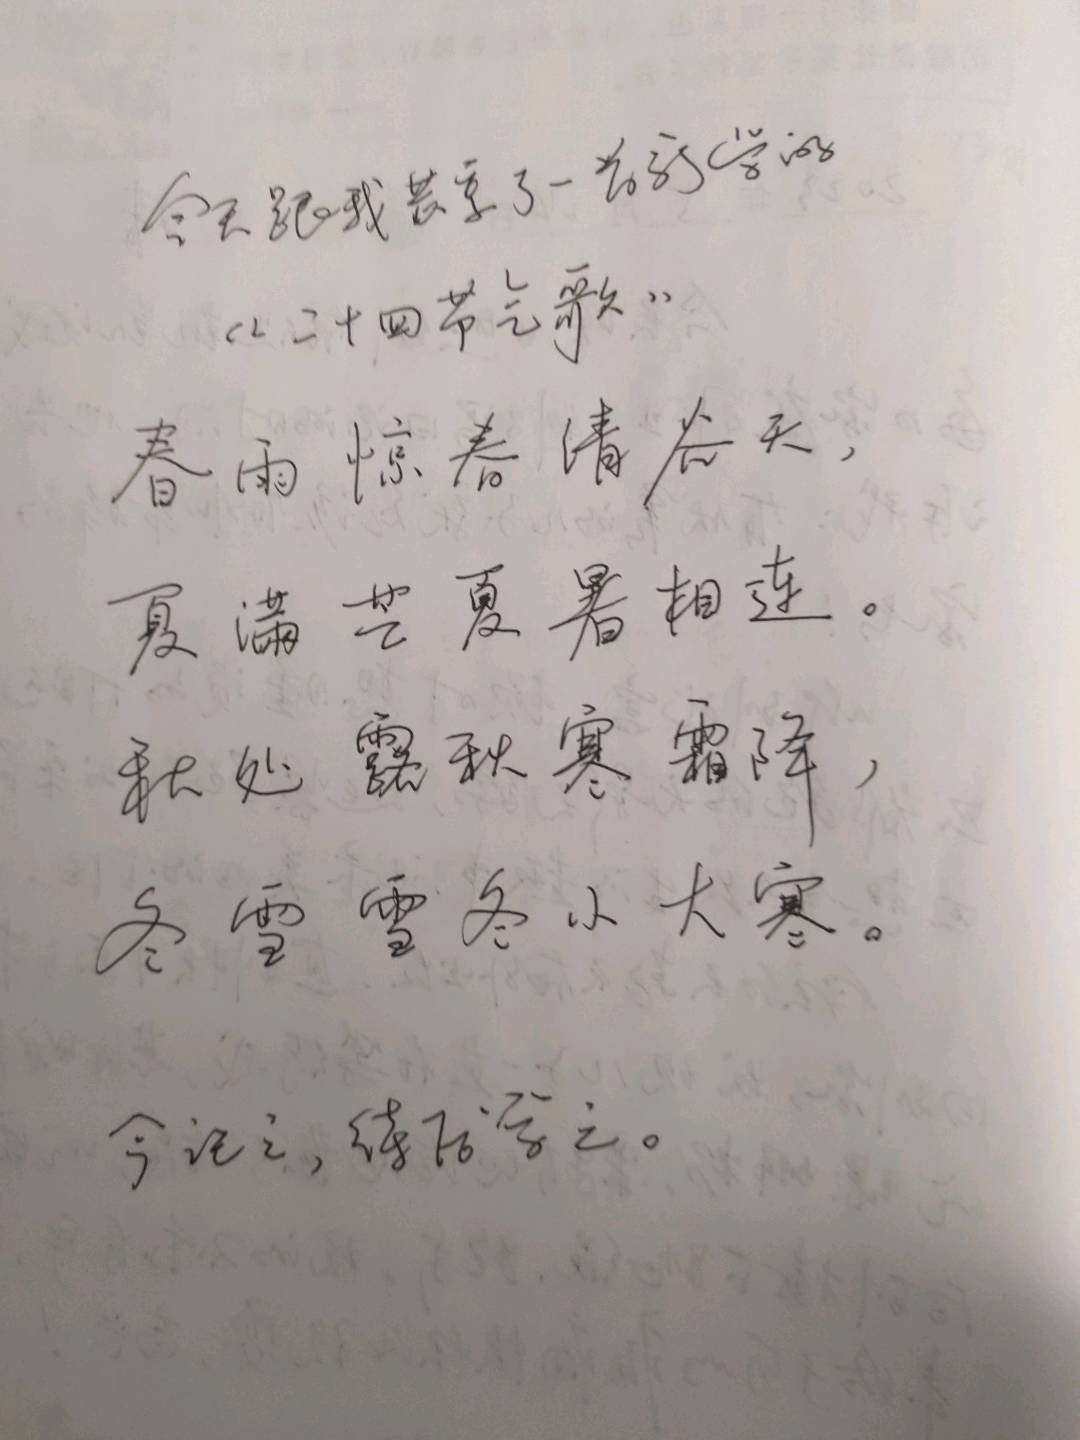 今天跟我共享了一首新学的
“二十四节气歌”
春雨惊春清谷天，
夏满芒夏暑相连。
秋处露秋寒霜降，
冬雪雪冬小大寒。
今记之，后学之。